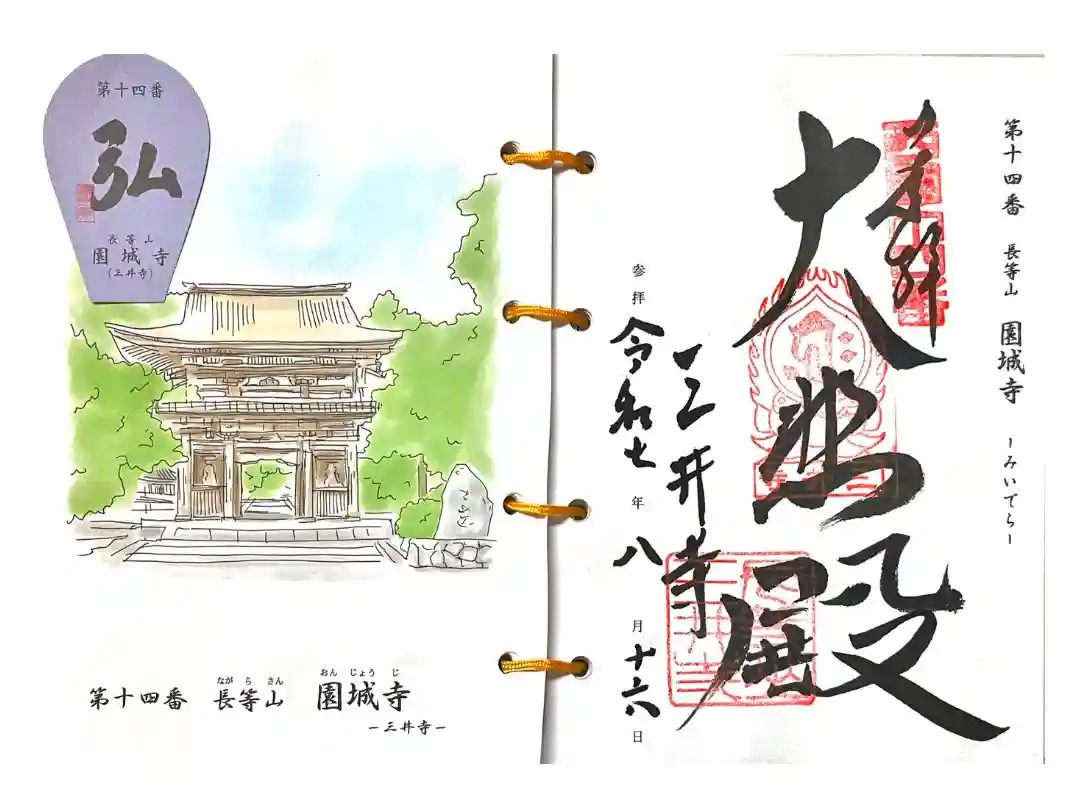 第十四番
弘
長等山
園城寺
(三井寺)
ながらさん おんじょうじ
第十四番 長等山 園城寺
－三井寺－
第十四番 長等山 園城寺 －みいでら－
奉拝
大悲殿
三井寺
参拝 令和七年八月十六日